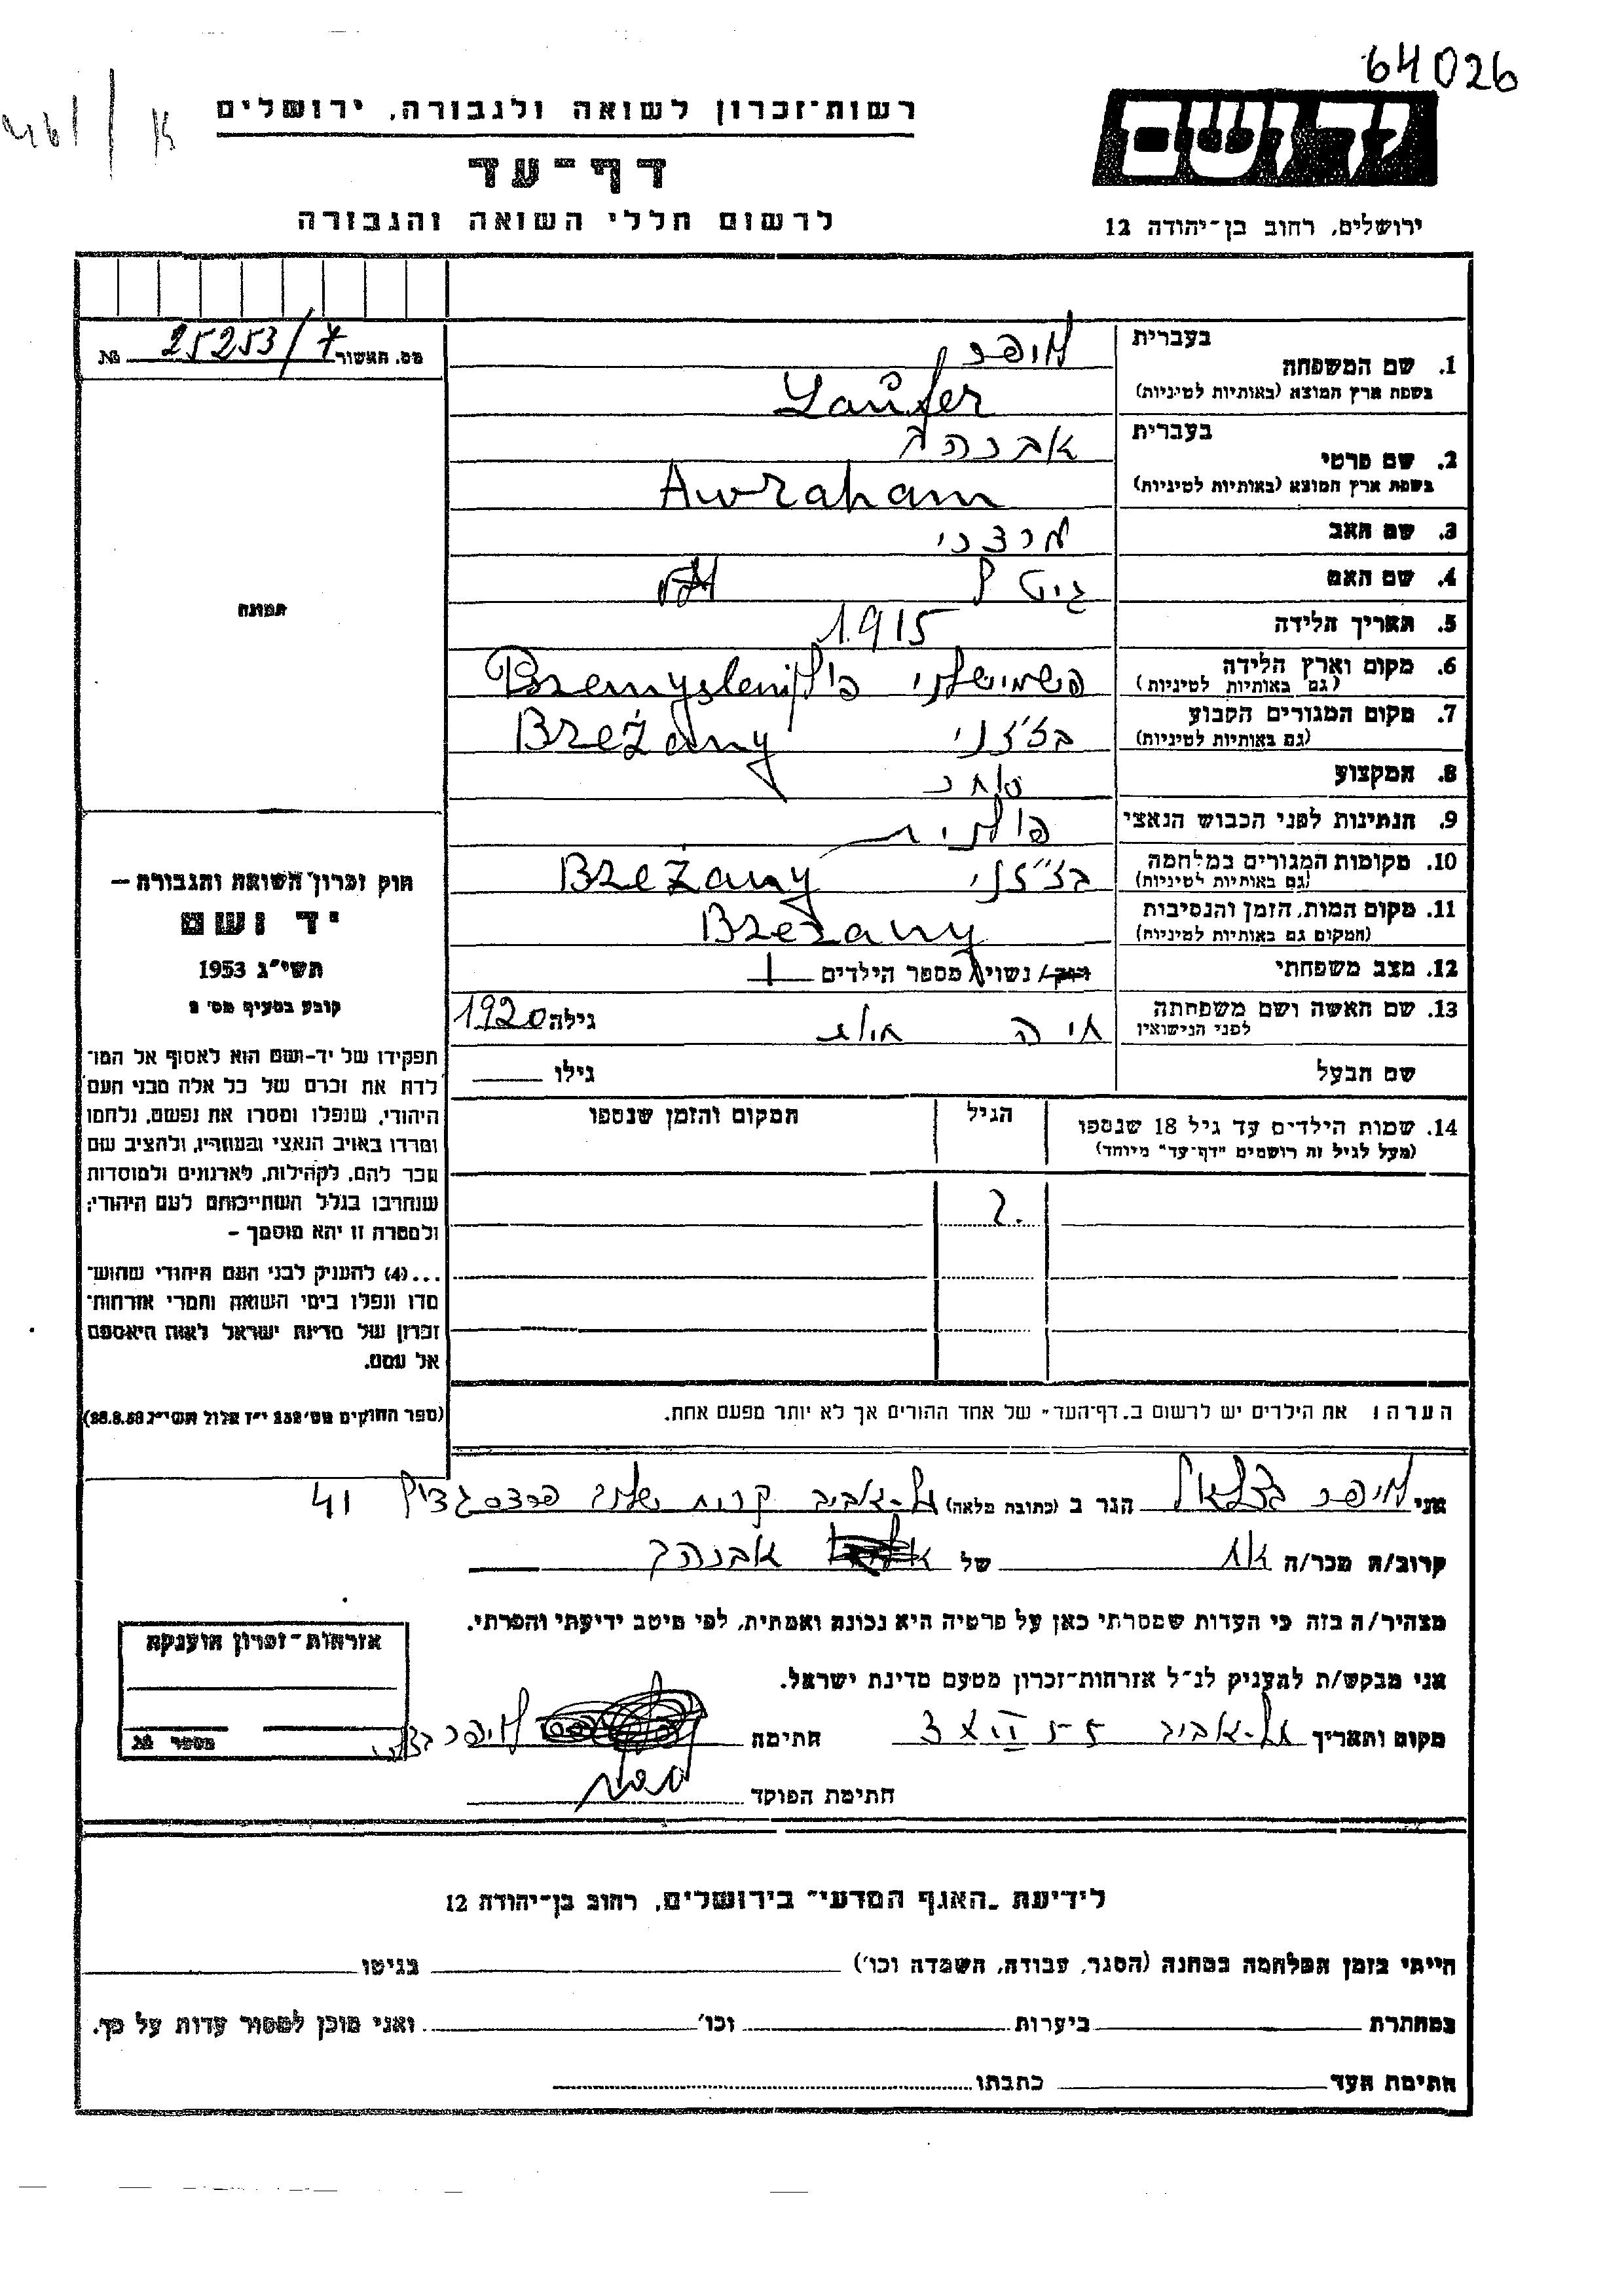 64026
רשות־זכרון לשואה ולגבורה, ירושלים
ידושם
דף־עד
לרשום חללי השואה והגבורה
ירושלים, רחוב בן־יהודה 12
מס. האשור 25253/7 №
1. שם המשפחה
בעברית
לופר
בשפת ארץ המוצא (באותיות לטיניות)
Laufer
2. שם פרטי
בעברית
אברהם
בשפת ארץ המוצא (באותיות לטיניות)
Awraham
3. שם האב מרדכי
4. שם האם
5. תאריך הלידה 1915
6. מקום וארץ הלידה
(גם באותיות לטיניות)
Przemyslani
7. מקום המגורים הקבוע
(גם באותיות לטיניות)
ברז'זני Brzeżany
8. המקצוע סוחר
9. הנתינות לפני הכבוש הנאצי פולנית
10. מקומות המגורים במלחמה
(גם באותיות לטיניות)
ברז'זני Brzeżany
11. מקום המות, הזמן והנסיבות
(המקום גם באותיות לטיניות)
Brzeżany
12. מצב משפחתי רווק/ נשוי/ מספר הילדים 1
13. שם האשה ושם משפחתה
לפני הנישואין
חיה גילה 1920
שם הבעל גילו
14. שמות הילדים עד גיל 18 שנספו
(מעל לגיל זה רושמים "דף־עד" מיוחד)
הגיל
המקום והזמן שנספו
2.
הערה: את הילדים יש לרשום ב„דף־העד" של אחד ההורים אך לא יותר מפעם אחת.
תמונה
חוק זכרון השואה והגבורה —
יד ושם
תשי"ג 1953
קובע בסעיף מס' 2
תפקידו של יד־ושם הוא לאסוף אל המו־
לדת את זכרם של כל אלה מבני העם
היהודי, שנפלו ומסרו את נפשם, נלחמו
ומרדו באויב הנאצי ובעוזריו, ולהציב שם
וזכר להם, לקהילות, לארגונים ולמוסדות
שנחרבו בגלל השתייכותם לעם היהודי;
ולמטרה זו יהא מוסמך –
...(4) להעניק לבני העם היהודי שהוש־
מדו ונפלו בימי השואה והמרי אזרחות־
זכרון של מדינת ישראל לאות היאספם
אל עמם.
(ספר החוקים מס' 132 י"ז אלול תשי"ג 28.8.53)
אני לופר בצלאל הגר ב (כתובת מלאה) תל-אביב קרית שלום 41
קרוב/ה מכר/ה אח של אברהם
מצהיר/ה בזה כי העדות שמסרתי כאן על פרטיה היא נכונה ואמתית, לפי מיטב ידיעתי והכרתי.
אני מבקש/ת להעניק לנ"ל אזרחות־זכרון מטעם מדינת ישראל.
מקום ותאריך תל-אביב 3 XII 55 חתימה לופר
חתימת הפוקד
אזרחות־זכרון הוענקה
מספר №
לידיעת „האגף המדעי" בירושלים, רחוב בן־יהודה 12
הייתי בזמן המלחמה במחנה (הסגר, עבודה, השמדה וכו') בגיטו
במחתרת ביערות וכו' ואני מוכן למסור עדות על כך.
חתימת העד כתבתו